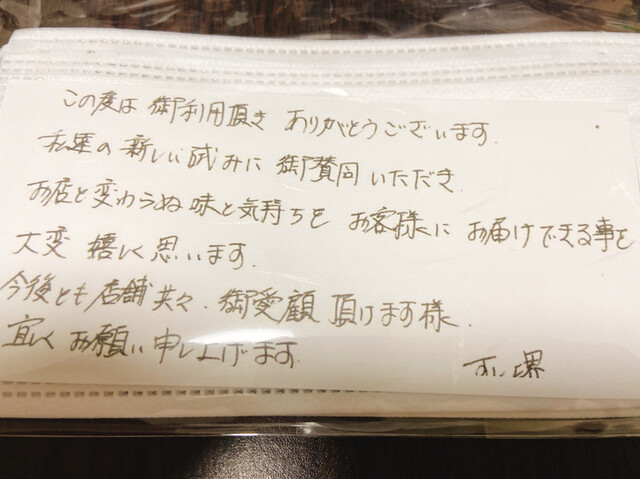 この度は 御利用頂き ありがとうございます.
私達の 新しい試みに 御賛同いただき.
お店と変わらぬ味と気持ちを お客様に お届けできる事を
大変 嬉しく 思います.
今後とも 店舗共々. 御愛顧 頂けます様.
宜しく お願い申し上げます.
すし堺